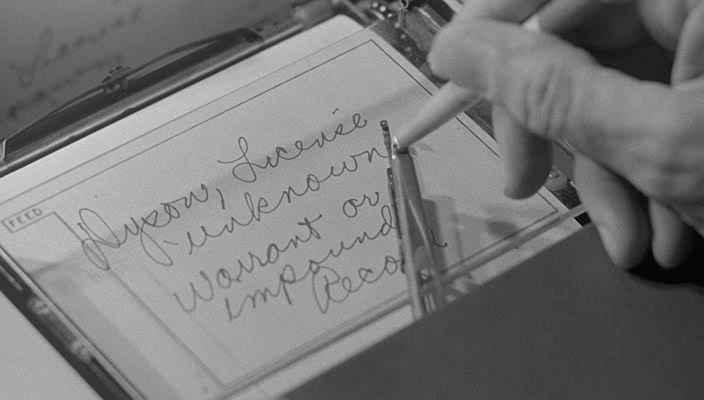 FEED
Dyson, License
-unknown
Warrant or
impound
Reco